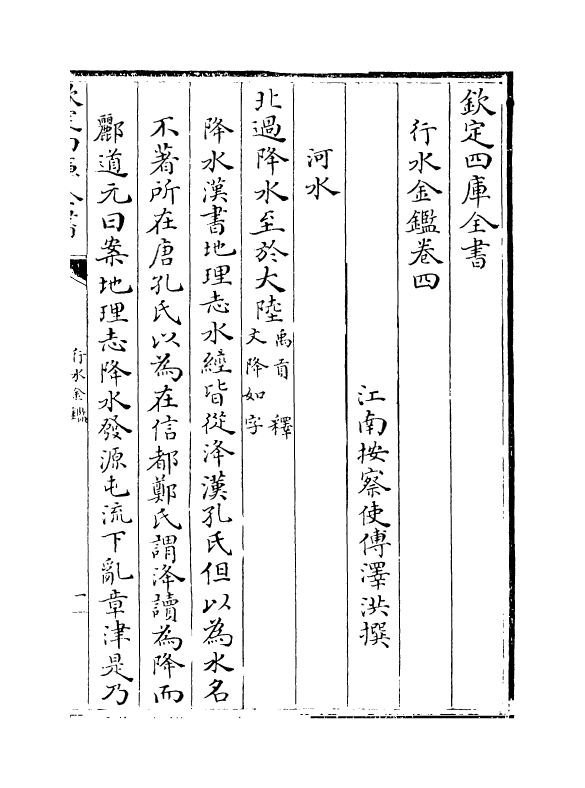 欽定四庫全書
行水金鑑卷四
江南按察使傅澤洪撰
河水
北過降水至於大陸禹貢 釋
文降如字
降水漢書地理志水經皆從洚漢孔氏但以為水名
不著所在唐孔氏以為在信都鄭氏謂洚讀為降而
酈道元曰案地理志降水發源屯流下亂章津是乃
欽定四庫全書
行水金鑑
一